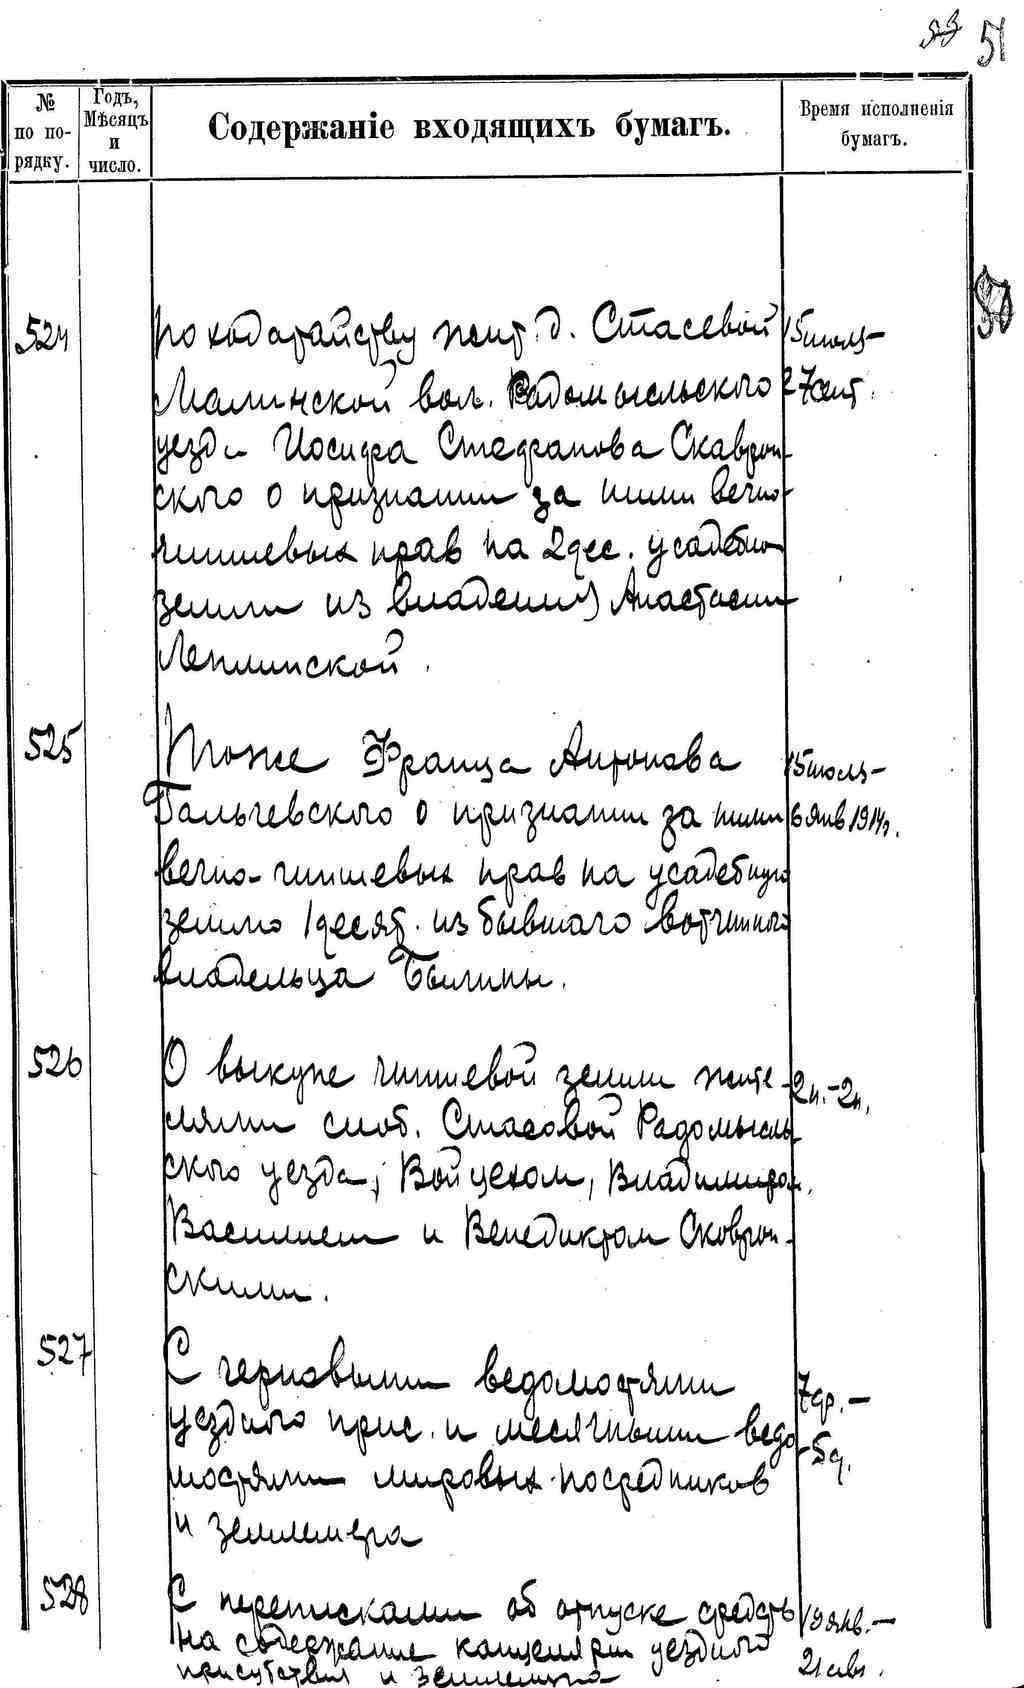 33 51
№ по по-рядку.
Годъ, Мѣсяцъ и число.
Содержаніе входящихъ бумагъ.
Время исполненія бумагъ.
50
524
По ходатайству жит. д. Стасевой
Малинской вол. Радомысльского
уезда Иосифа Стефанова Скаврон-
ского о признании за ним вечно-
чиншевых прав на 2 дес. усадебно
земли из владений Анастасии
Леплинской.
15 июля –
27 сент.
525
Тоже Франца Антонова
Гальчевского о признании за ним
вечно-чиншевых прав на усадебную
землю 1 десят. из бывшаго вотчинного
владельца Былины.
15 июля –
6 янв 1914г.
526
О выкупе чиншевой земли жите-
лями слоб. Стасовой Радомысль-
ского уезда, Войцехом, Владимиром,
Василием и Венедиктом Сковрон-
скими.
2н.-2н.
527
С черновыми ведомостями
уездного прис. и месячными ведо
мостями мировых посредников
и землемера
7ф. –
5д.
528
С переписками об отпуске средств
на содержание канцелярии уездного
присутствия и землемера
19 янв. –
21